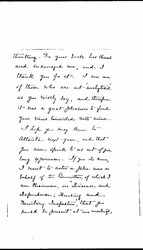 thinking. So your book has thrilled
and encouraged me, and I
thank you for it. I am one
of those who are not satisfied
as you wisely say, and therefore
it was a great pleasure to find
your views coincided with mine.
I hope you may come to
Atlanta next year, and that
you will speak to us out of your
long experience. If you do come,
I want to enter a plea now on
behalf of a Committee of which I
am Chairman, on Diseases and
Dependence, Nursing and
Sanitary Inspection, that you
would be present at one meeting,